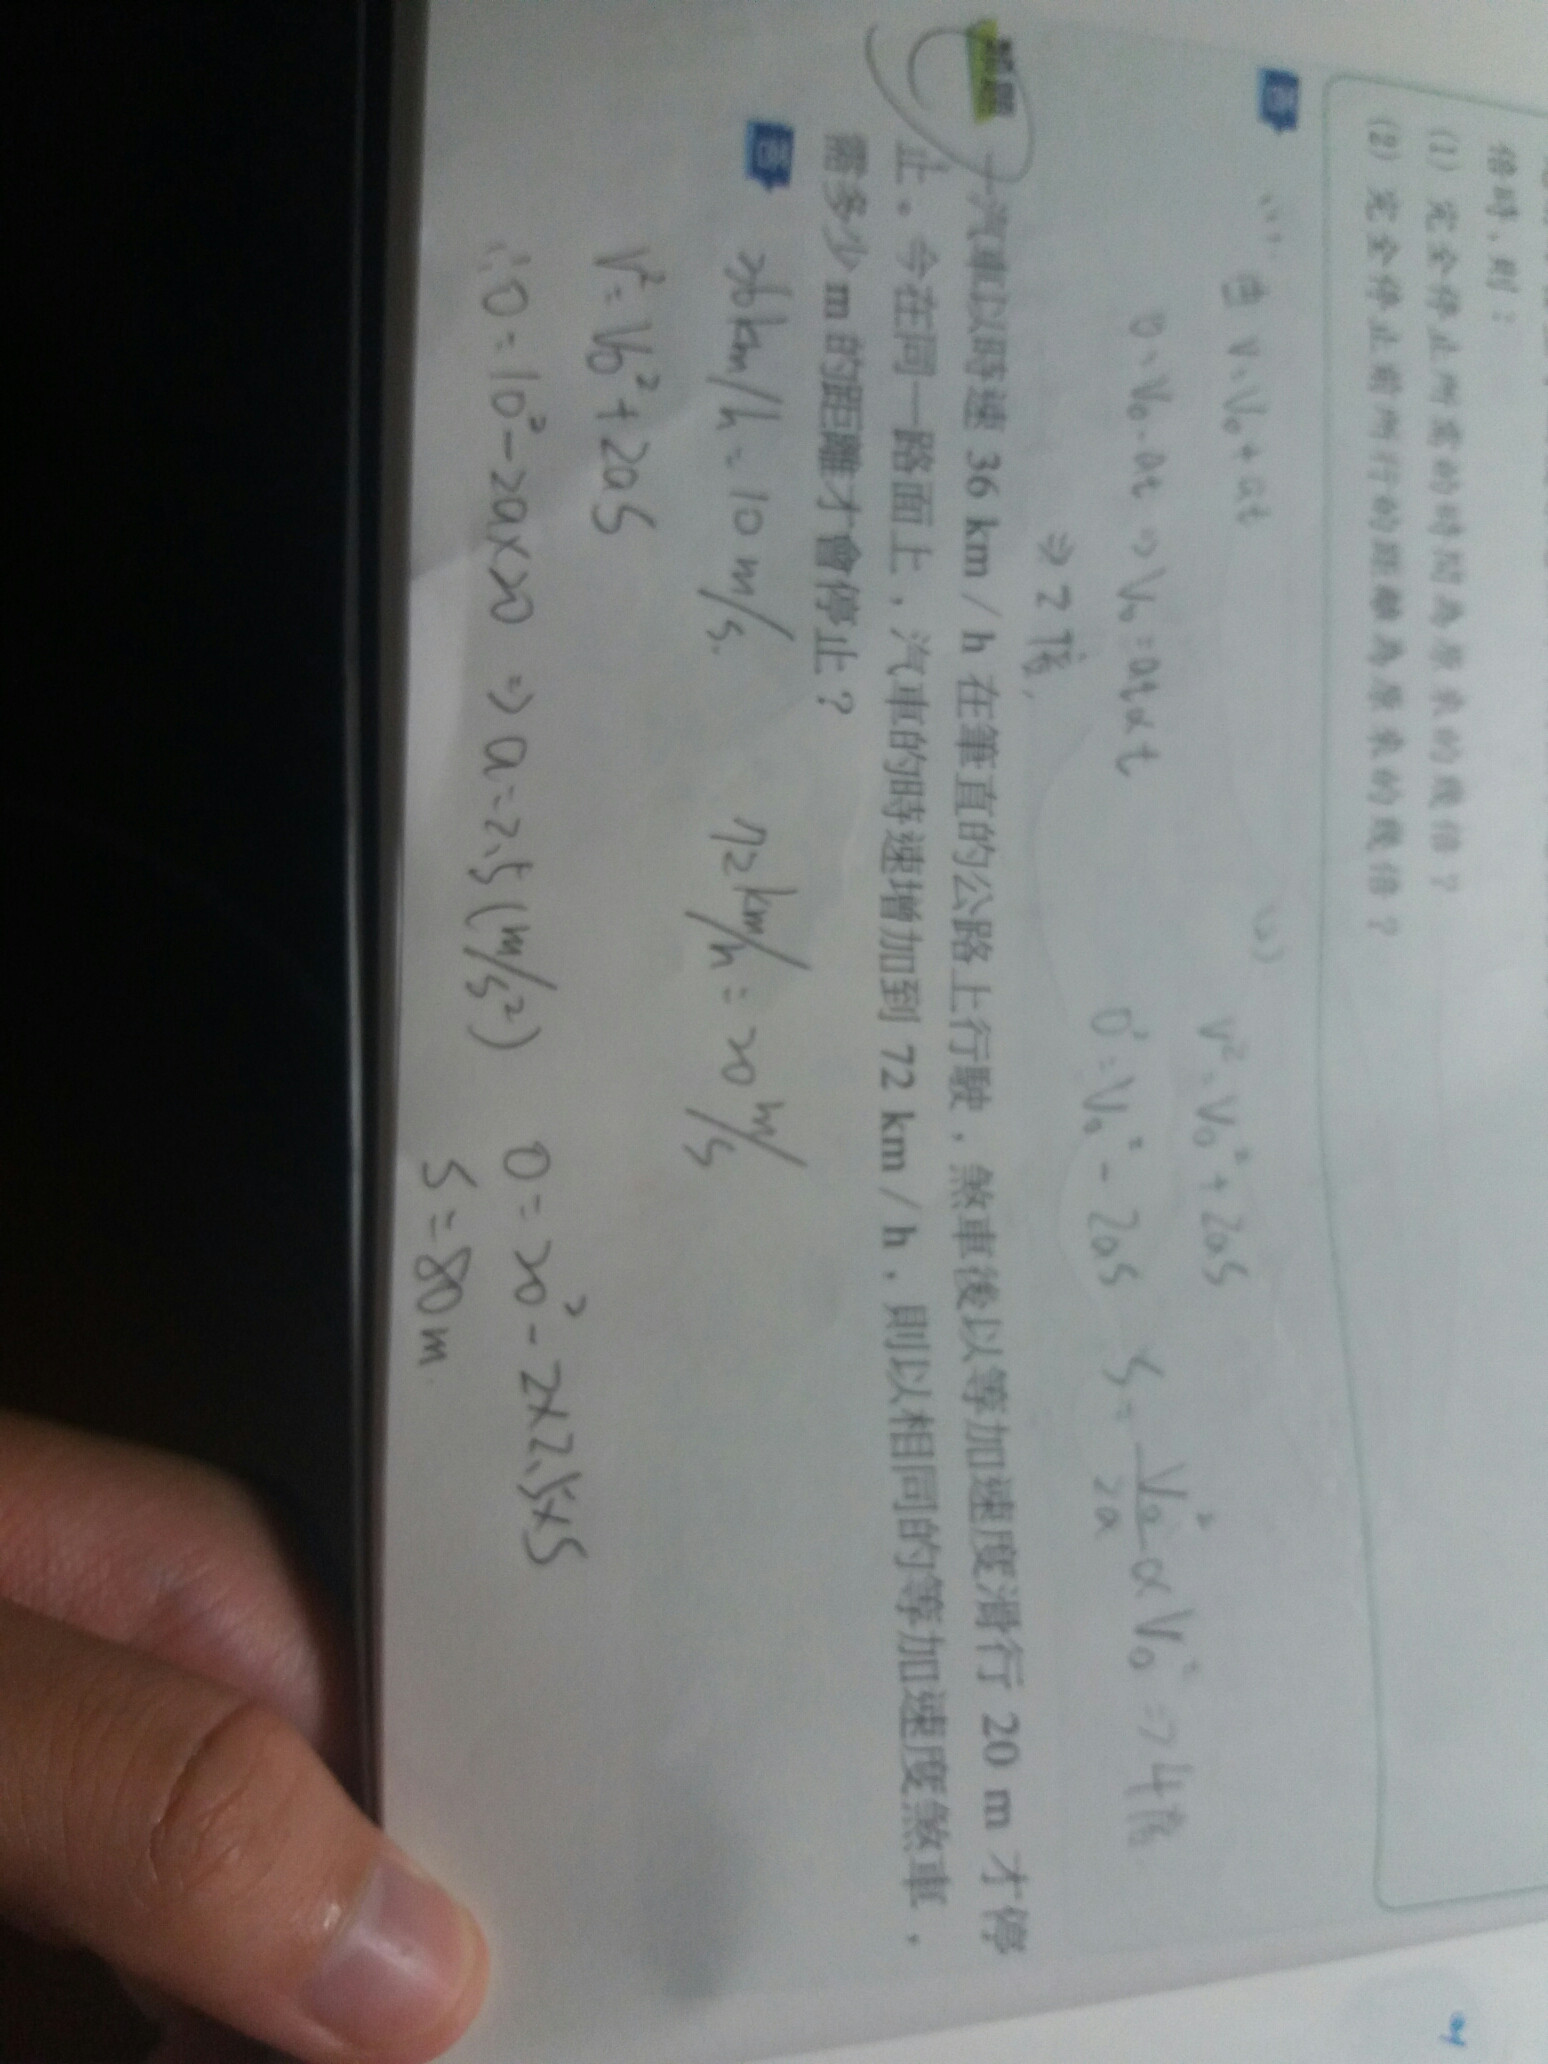 倍時，則：
(1) 完全停止所需的時間為原來的幾倍？
(2) 完全停止前所行的距離為原來的幾倍？
答
(1) 由 V=V₀+at
0=V₀-at ⇒ V₀=at∝t
⇒ 2倍,
(2)
V²=V₀²+2aS
0²=V₀²-2aS S=V₀²/2a∝V₀² ⇒ 4倍
類題
一汽車以時速 36 km / h 在筆直的公路上行駛，煞車後以等加速度滑行 20 m 才停
止。今在同一路面上，汽車的時速增加到 72 km / h，則以相同的等加速度煞車，
需多少 m 的距離才會停止？
答
36km/h=10m/s. 72km/h=20m/s
V²=V₀²+2aS
∴0=10²-2a×20 ⇒ a=2.5(m/s²) 0=20²-2×2.5×S
S=80m.